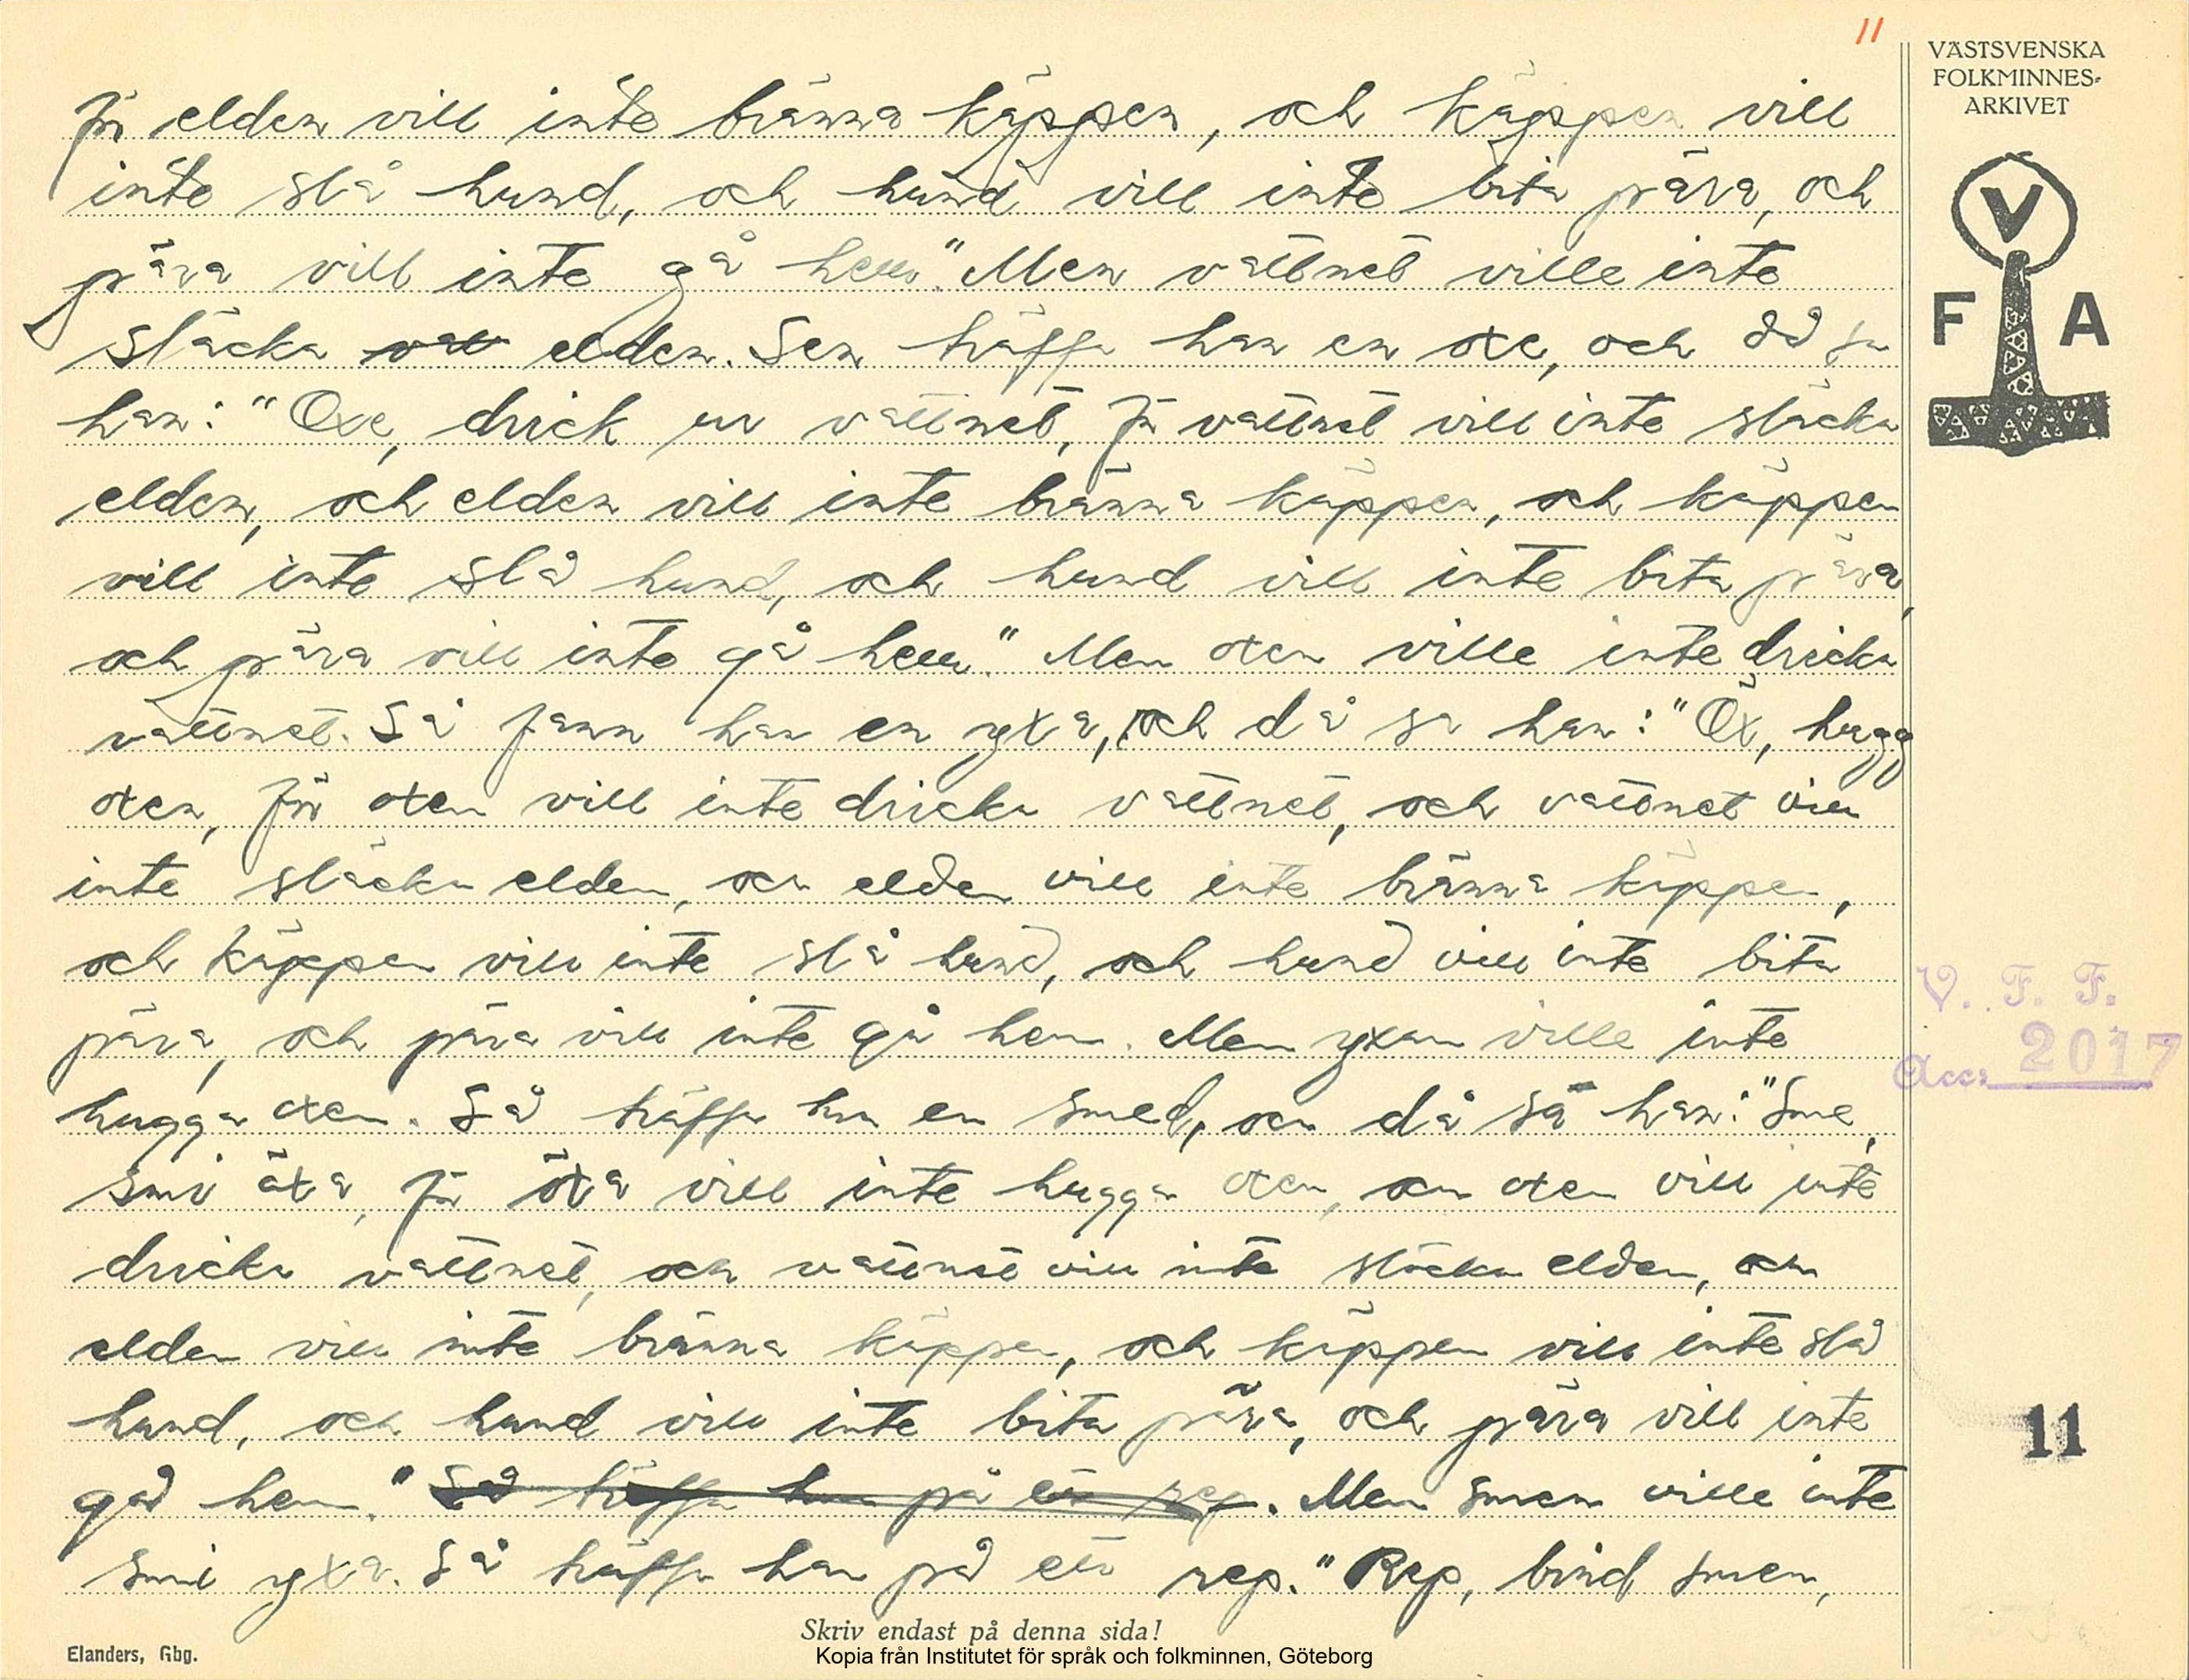 11
VÄSTSVENSKA
FOLKMINNES-
ARKIVET
V
F A
för elden vill inte bränna käppen, och käppen vill
inte slå hund, och hund vill inte bita pära, och
pära vill inte gå hem." Men vattnet ville inte
släcka elden. Sen träffa han en oxe, och då sa
han: "Oxe, drick ur vattnet, för vattnet vill inte släcka
elden, och elden vill inte bränna käppen, och käppen
vill inte slå hund, och hund vill inte bita pära,
och pära vill inte gå hem." Men oxen ville inte dricka
vattnet. Så fann han en yxa, och då sa han: "Öx, hugg
oxen, för oxen vill inte dricka vattnet, och vattnet vill
inte släcka elden, och elden vill inte bränna käppen,
och käppen vill inte slå hund, och hund vill inte bita
pära, och pära vill inte gå hem. Men yxan ville inte
hugga oxen. Så träffa han en smed, och då sa han: "Sme,
smi öxa, för öxa vill inte hugga oxen, och oxen vill inte
dricka vattnet, och vattnet vill inte släcka elden, och
elden vill inte bränna käppen, och käppen vill inte slå
hund, och hund vill inte bita pära, och pära vill inte
gå hem." Så träffa han på ett rep. Men smen ville inte
smi yxa. Så träffa han på ett rep. "Rep, bind smen,
V. F. F.
Acc: 2017
11
Skriv endast på denna sida!
Elanders, Gbg.
Kopia från Institutet för språk och folkminnen, Göteborg